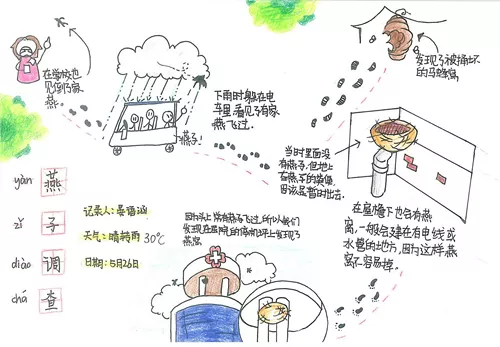 在学校也
见到了家
燕。
下雨时躲在电
车里,看见了有家
燕飞过。
燕子!
发现了被捅坏
的马蜂窝
当时里面没
有燕子,但地上
有燕子的粪便,
应该是暂时出去。
在屋檐下也会有燕
窝,一般会建在有电线或
水管的地方,因为这样燕
窝不容易掉。
yàn 燕
zǐ 子
diào 调
chá 查
记录人:
天气:晴转雨 30℃
日期:5月26日
因为头上常有燕子飞过,所以我们
发现在医院的停机坪上发现了
燕窝